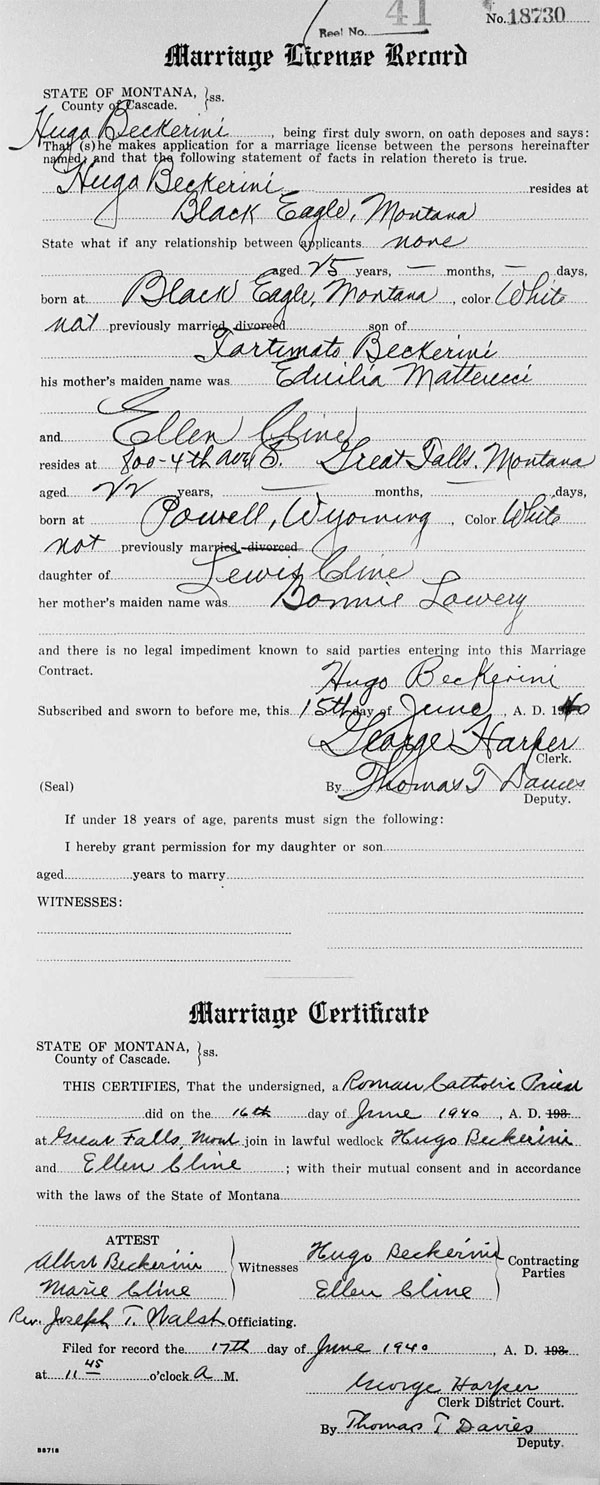 Reel No. 41 No. 18730
Marriage License Record
STATE OF MONTANA, } ss.
County of Cascade.
Hugo Beckerini, being first duly sworn, on oath deposes and says:
That (s)he makes application for a marriage license between the persons hereinafter
named, and that the following statement of facts in relation thereto is true.
Hugo Beckerini resides at
Black Eagle, Montana
State what if any relationship between applicants none
aged 25 years, — months, — days,
born at Black Eagle, Montana, color White
not previously married, divorced son of
Fortunato Beckerini
his mother's maiden name was Matteucci
and Ellen Cline
resides at 800-4th Ave S. Great Falls, Montana
aged 22 years, — months, — days,
born at Powell, Wyoming, Color White
not previously married, divorced
daughter of Lewis Cline
her mother's maiden name was Bonnie Lowery
and there is no legal impediment known to said parties entering into this Marriage
Contract.
Hugo Beckerini
Subscribed and sworn to before me, this 15th day of June, A. D. 1940
George Harper
Clerk.
(Seal) By Thomas T Davies
Deputy.
If under 18 years of age, parents must sign the following:
I hereby grant permission for my daughter or son
aged years to marry
WITNESSES:
Marriage Certificate
STATE OF MONTANA, } ss.
County of Cascade.
THIS CERTIFIES, That the undersigned, a Roman Catholic Priest
did on the 16th day of June 1940, A. D. 193
at Great Falls, Mont join in lawful wedlock Hugo Beckerini
and Ellen Cline; with their mutual consent and in accordance
with the laws of the State of Montana
ATTEST
Albert Beckerini } Witnesses Hugo Beckerini } Contracting
Marie Cline Ellen Cline Parties
Rev. Joseph T. Walsh Officiating.
Filed for record the 17th day of June 1940, A. D. 193
at 11 45 o'clock A M.
George Harper
Clerk District Court.
By Thomas T Davies
Deputy.